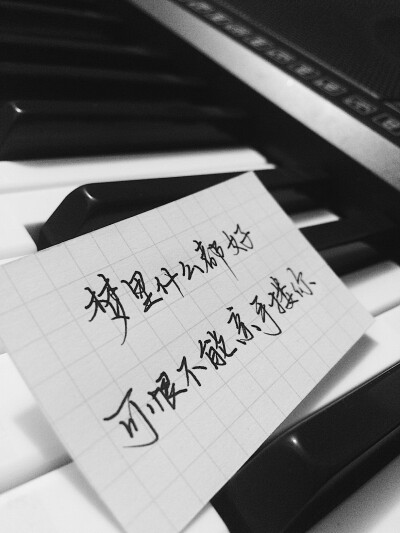 梦里什么都好
可恨不能亲手搂你